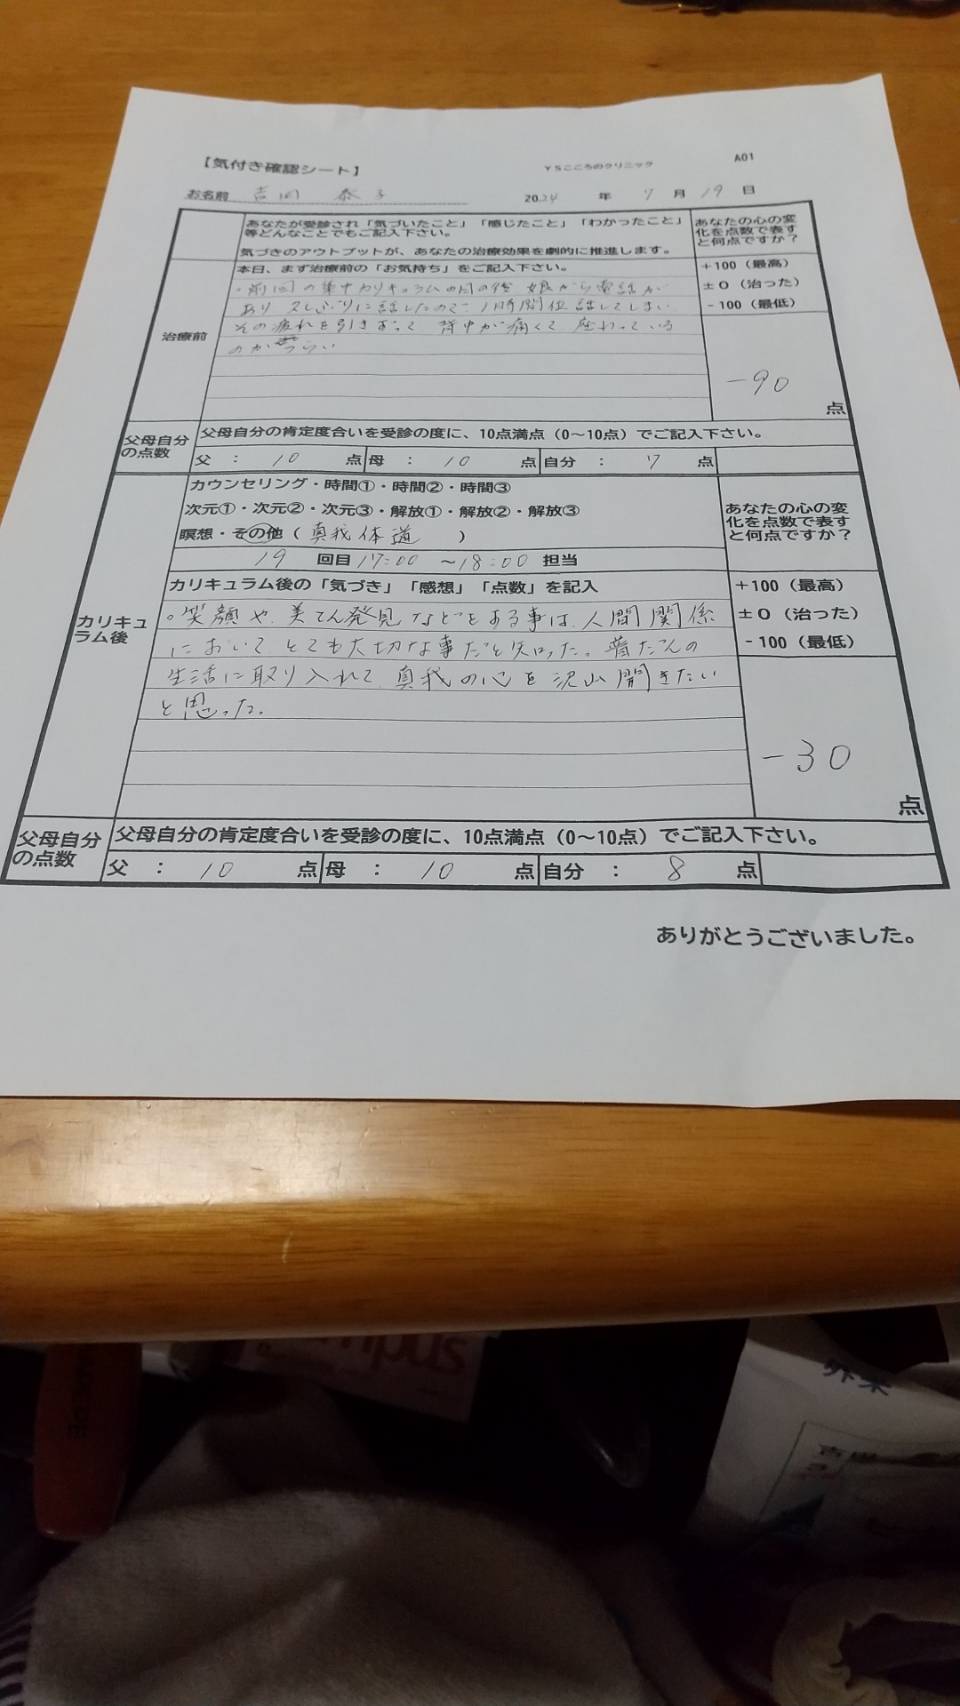 【気付き確認シート】 YSこころのクリニック A01
お名前 吉田 泰子 2024 年 7 月 19 日
あなたが受診され「気づいたこと」「感じたこと」「わかったこと」
等どんなことでもご記入下さい。
気づきのアウトプットが、あなたの治療効果を劇的に推進します。
あなたの心の変
化を点数で表す
と何点ですか？
治療前
本日、まず治療前の「お気持ち」をご記入下さい。
・前回の集中カリキュラムの日の後 娘から電話が
あり 久しぶりに話したので 1時間位話してしまい
その疲れを引きずって 背中が痛くて 座わっている
のが づらい
+100（最高）
±0（治った）
-100（最低）
-90
点
父母自分
の点数
父母自分の肯定度合いを受診の度に、10点満点（0～10点）でご記入下さい。
父 : 10 点 母 : 10 点 自分 : 7 点
カリキュ
ラム後
カウンセリング・時間①・時間②・時間③
次元①・次元②・次元③・解放①・解放②・解放③
瞑想・その他（ 真我体道 ）
19 回目 17:00 ～18:00 担当
あなたの心の変
化を点数で表す
と何点ですか？
カリキュラム後の「気づき」「感想」「点数」を記入
。笑顔や、美てん発見などをある事は、人間関係
において とても大切な事だと知った。普だんの
生活に取り入れて、真我の心を沢山開きたい
と思った。
+100（最高）
±0（治った）
-100（最低）
-30
点
父母自分
の点数
父母自分の肯定度合いを受診の度に、10点満点（0～10点）でご記入下さい。
父 : 10 点 母 : 10 点 自分 : 8 点
ありがとうございました。